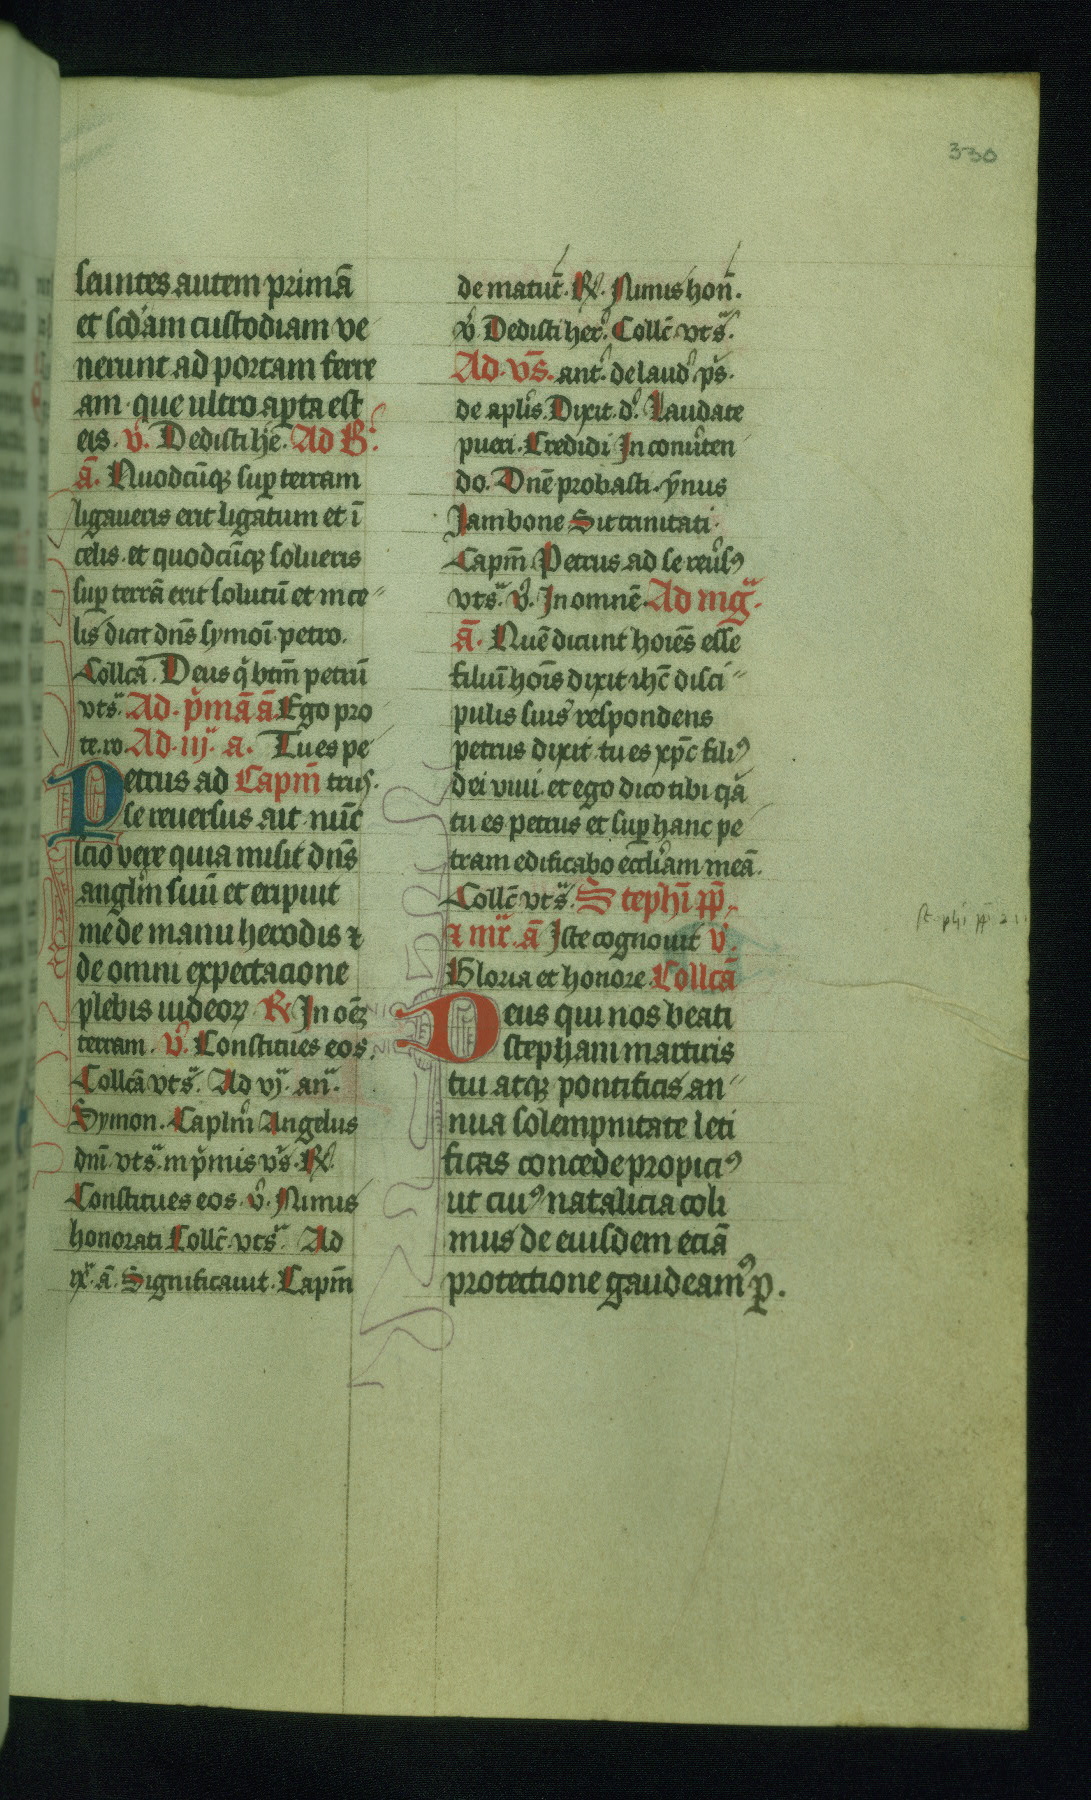 330
seuntes autem primā
et scd̓am custodiam ve
nerunt ad portam ferre
am. que ultro aꝑta est
eis. v̓. Dedisti he̅. Ad B̓.
a̅. Quodcu̅qꝫ suꝑ terram
ligaveris erit ligatum et i̅
celis. et quodcu̅qꝫ solueris
suꝑ terra̅ erit solutu̅ et in ce
lis dicit dn̅s symoi̅ petro.
Collca̅. Deus q̓ btm̅ petru̅
vts̓. Ad. p̓ma̅ a̅. Ego pro
te. ro. Ad. iij. a. Tu es pe
Petrus ad Capm̅ trus.
se reuersus ait nu̅c
scio vere quia misit dn̅s
angl̓m suu̅ et eripuit
me de manu herodis ⁊
de omni expectacione
plebis iudeoꝝ ℞ In oe̅ꝫ
terram. v̓. Constitues eos.
Collca̅ vts̓. Ad vj. an̓.
Symon. Caplm̓ Angelus
dn̅i. vts̓. in p̓mis v̓s. ℞.
Constitues eos. v̓. Nimis
honorati Collc̅. vts̓. Ad
ix. a̅. Significauit. Capm̅
de matut̅. ℞. Nimis hon̅.
v̓ Dedisti her̓. Collc̅. vts̓.
Ad. vs̅. ant̓. de laud̓ ps̓.
de apl̓is. Dixit. d̓. Laudate
pueri. Credidi In conu̓ten
do. Dn̅e probasti. ẏnus
Jam bone Sit trinitati.
Capm̅ Petrus ad se reu̓sꝰ
vts̓. v̓. In omne̅. Ad mg̓.
a̅. Que̅ dicunt hoi̅es esse
filiu̅ hoi̅s dixit ihc̅ disci
pulis suis respondens
petrus dixit tu es xpc̅ filiꝰ
dei viui. et ego dico tibi qa̓
tu es petrus et suꝑ hanc pe
tram edificabo eccl̓iam mea̅.
Collc̅ vts̓. Stephi̅ pp̅.
⁊ mr̅. a̅ Iste cognouit v̓.
Gloria et honore. Collca̅
Deus qui nos beati
stephani martiris
tui atqꝫ pontificis an
nua solempnitate leti
ficas concede propiciꝰ
ut cuiꝰ natalicia coli
mus de eiusdem etia̅
protectione gaudeamꝰ ꝑ.